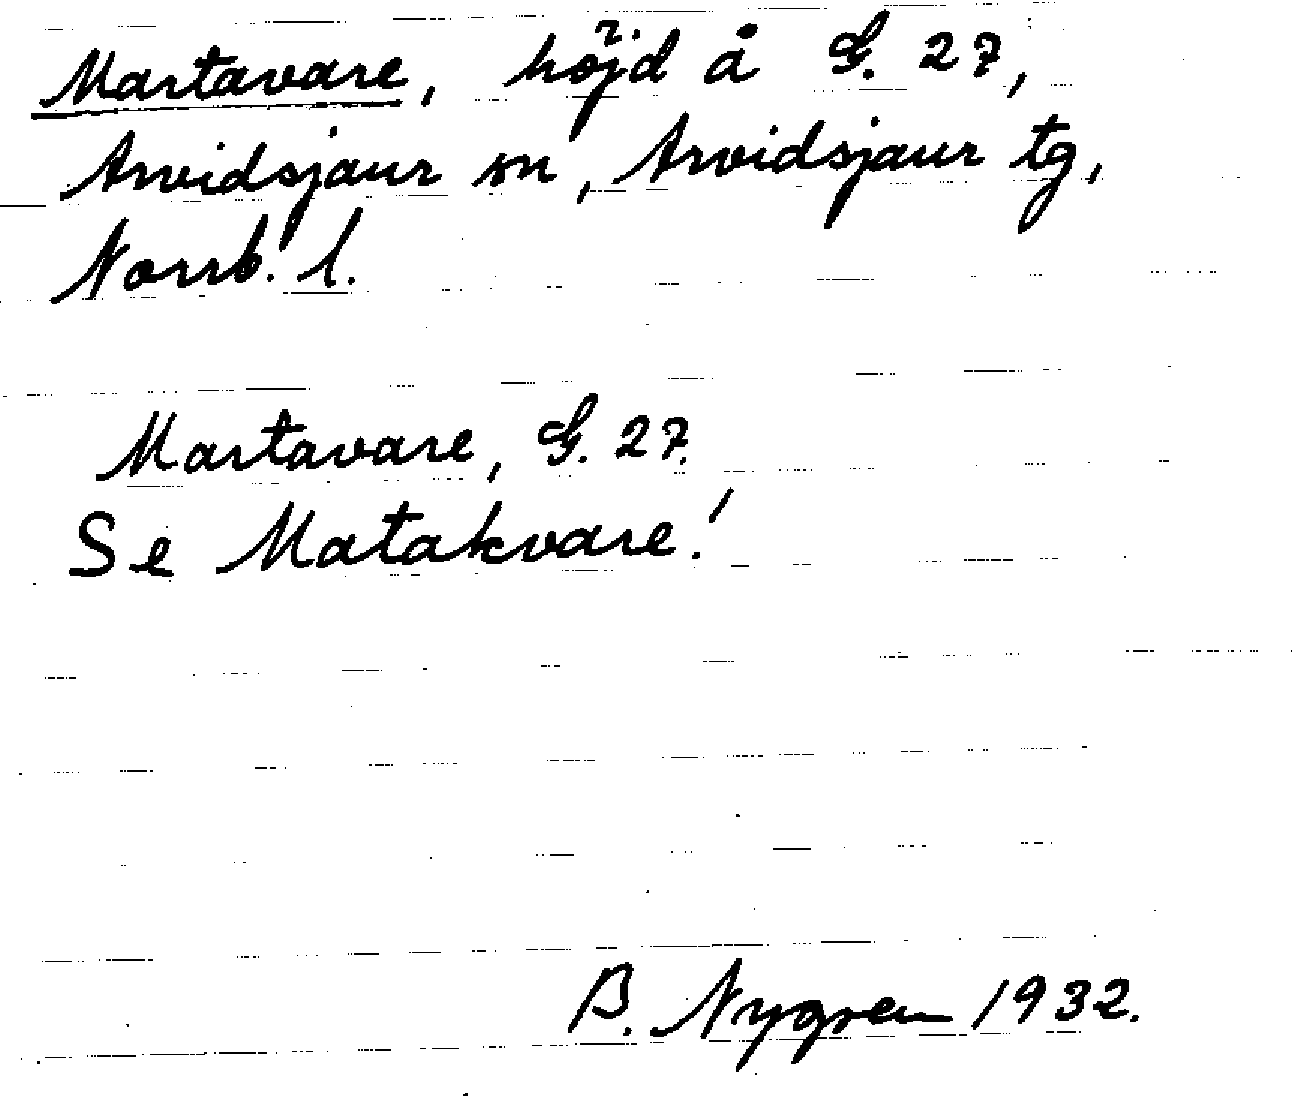 Martavare, höjd å G. 27,
Arvidsjaur sn, Arvidsjaur tg,
Norrb. l.
Martavare, G. 27.
Se Matakvare!
B. Nygren 1932.